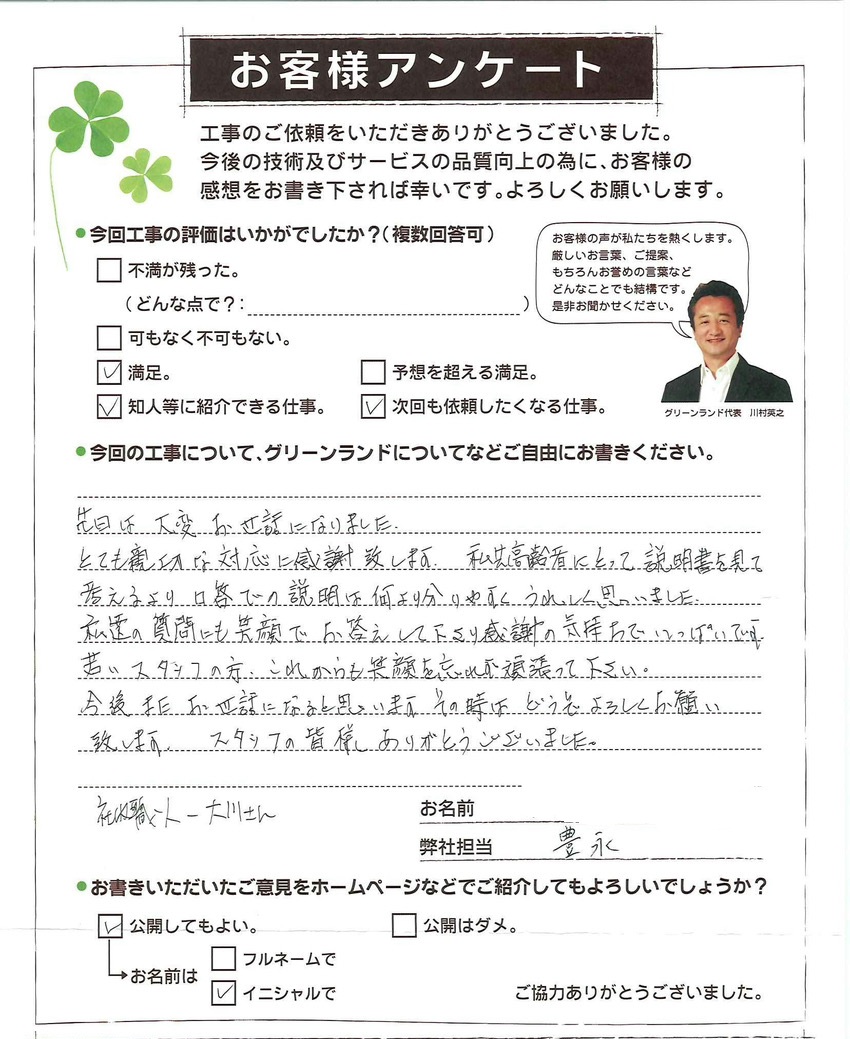 お客様アンケート
工事のご依頼をいただきありがとうございました。
今後の技術及びサービスの品質向上の為に、お客様の
感想をお書き下されば幸いです。よろしくお願いします。
●今回工事の評価はいかがでしたか？（複数回答可）
不満が残った。
（どんな点で？：　）
可もなく不可もない。
満足。
予想を超える満足。
知人等に紹介できる仕事。
次回も依頼したくなる仕事。
お客様の声が私たちを熱くします。
厳しいお言葉、ご提案、
もちろんお誉めの言葉など
どんなことでも結構です。
是非お聞かせください。
グリーンランド代表　川村英之
●今回の工事について、グリーンランドについてなどご自由にお書きください。
先日は 大変 お世話になりました.
とても親切な対応に感謝致します 私共高齢者にとって説明書を見て
考えるより口答での説明は何より分りやすく うれしく思いました.
私達の質問にも笑顔でお答えして下さり感謝の気持ちでいっぱいです
若いスタッフの方、これからも笑顔を忘れず頑張って下さい。
今後またお世話になると思いますその時はどうぞよろしくお願い
致します. スタッフの皆様 ありがとうございました。
社内職人ー大川さん
お名前
弊社担当　豊永
●お書きいただいたご意見をホームページなどでご紹介してもよろしいでしょうか？
公開してもよい。
公開はダメ。
お名前は
フルネームで
イニシャルで
ご協力ありがとうございました。